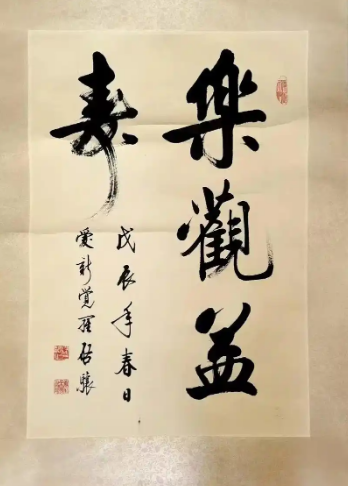 樂觀益
壽
戊辰年春日
愛新覺羅啓驤